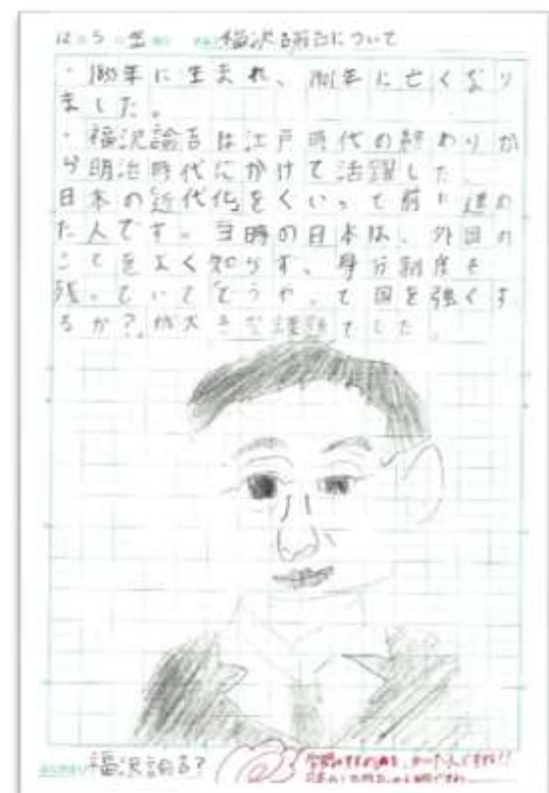 12 5 金 福沢諭吉について
・1835年に生まれ、1901年に亡くなり
ました。
・福沢諭吉は江戸時代の終わりか
ら明治時代にかけて活躍した
日本の近代化をぐいって前に進め
た人です。当時の日本は、外国の
ことをよく知らず、身分制度も
残っていて「どうやって国を強くす
るか?」が大きな課題でした。
福沢諭吉?
学問のすすめ